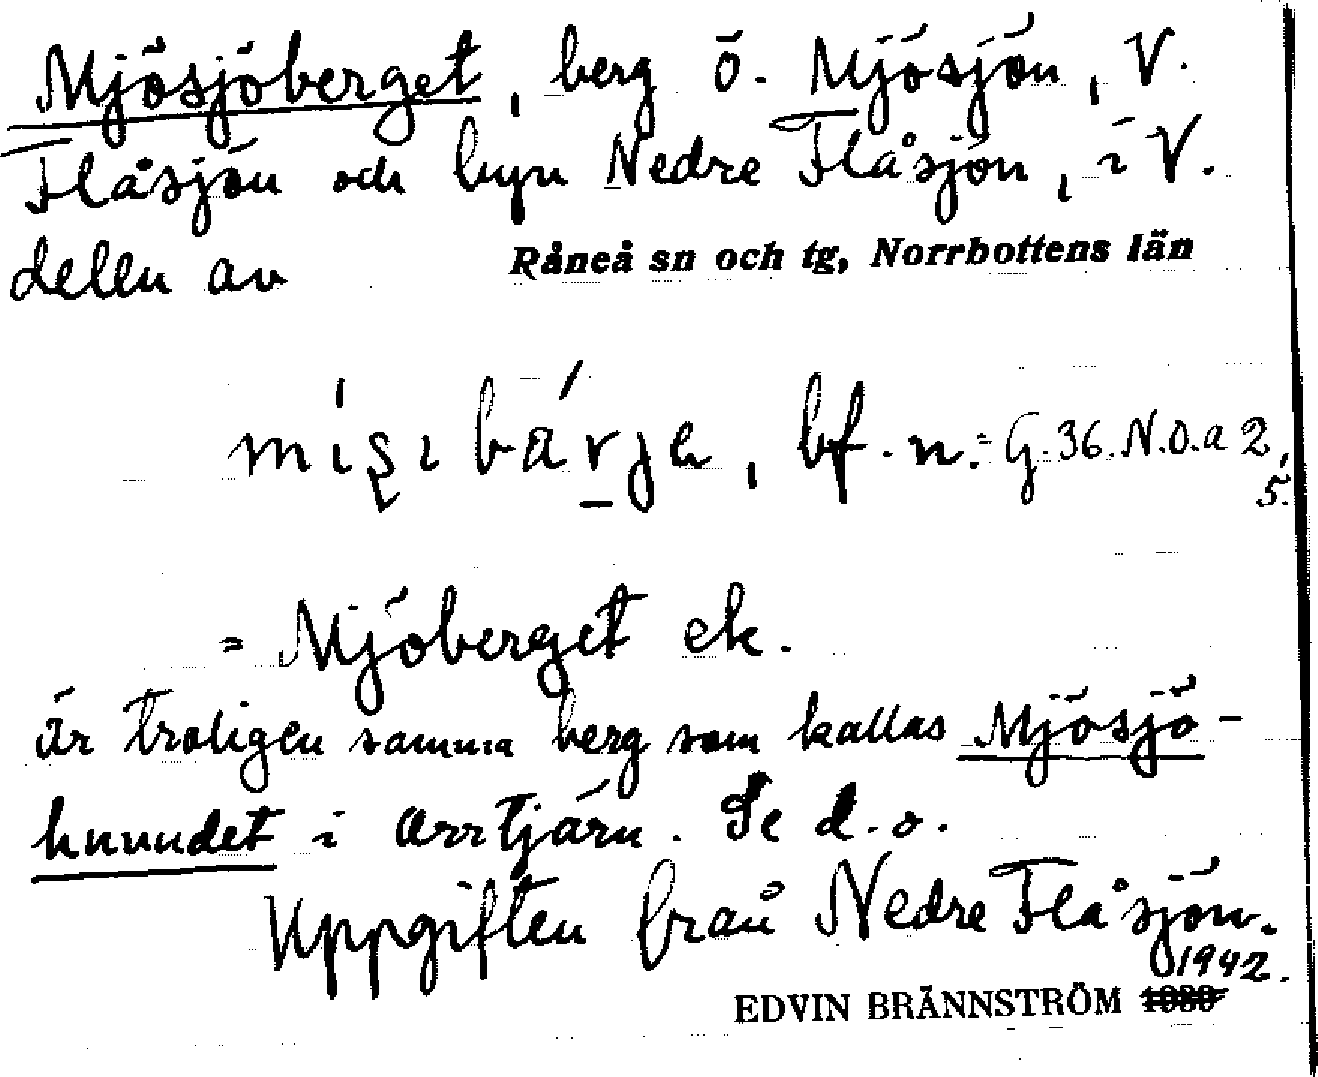 Mjösjöberget, berg ö. Mjösjön, V.
Flåsjön och byn Nedre Flåsjön, i V.
delen av Råneå sn och tg, Norrbottens län
bf. n. = G. 36. N.O. a 2,
5.
= Mjöberget ek.
är troligen samma berg som kallas Mjösjö-
huvudet i Orrtjärn. Se d. o.
Uppgiften från Nedre Flåsjön.
1942.
EDVIN BRÄNNSTRÖM